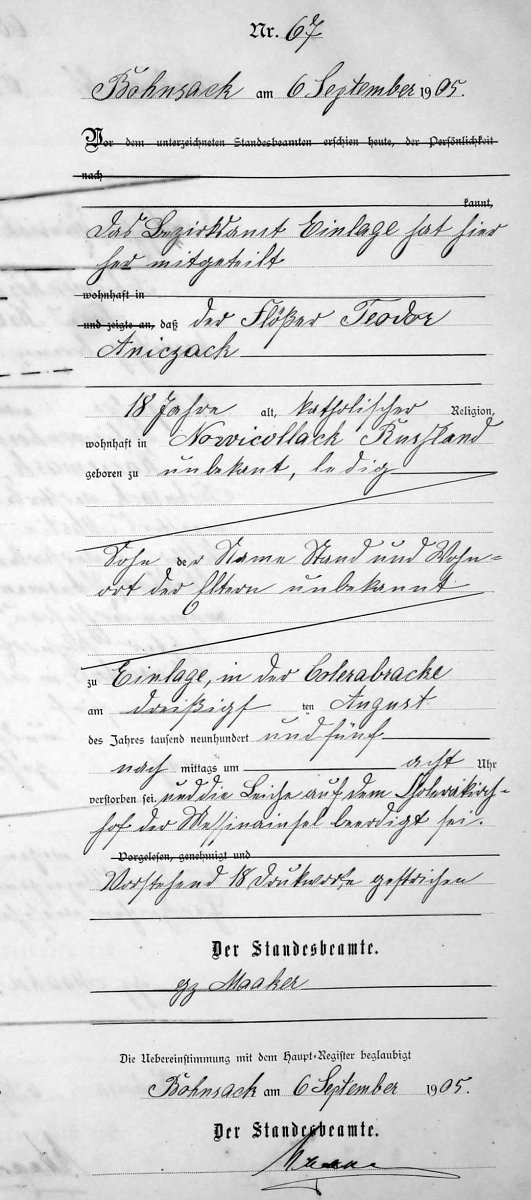 Nr. 67
Bohnsack am 6 September 1905.
Vor dem unterzeichneten Standesbeamten erschien heute, der Persönlichkeit
nach
kannt,
das Bezirksamt Einlage hat hier
her mitgeteilt
wohnhaft in
und zeigte an, daß der Flößer Teodor
Aniczack
18 Jahre alt, katholischer Religion,
wohnhaft in Nowicollack Russland
geboren zu unbekant, ledig
Sohn der Name Stand und Wohn-
ort der Eltern unbekannt
zu Einlage, in der Colerabracke
am dreißigs ten August
des Jahres tausend neunhundert und fünf
nach mittags um acht Uhr
verstorben sei. und die Leiche auf dem Cholerakirch-
hof der Messinainsel beerdigt sei.
Vorgelesen, genehmigt und
Vorstehend 18 Drukworte gestrichen
Der Standesbeamte.
gz Maaker
Die Uebereinstimmung mit dem Haupt-Register beglaubigt
Bohnsack am 6 September 1905.
Der Standesbeamte.